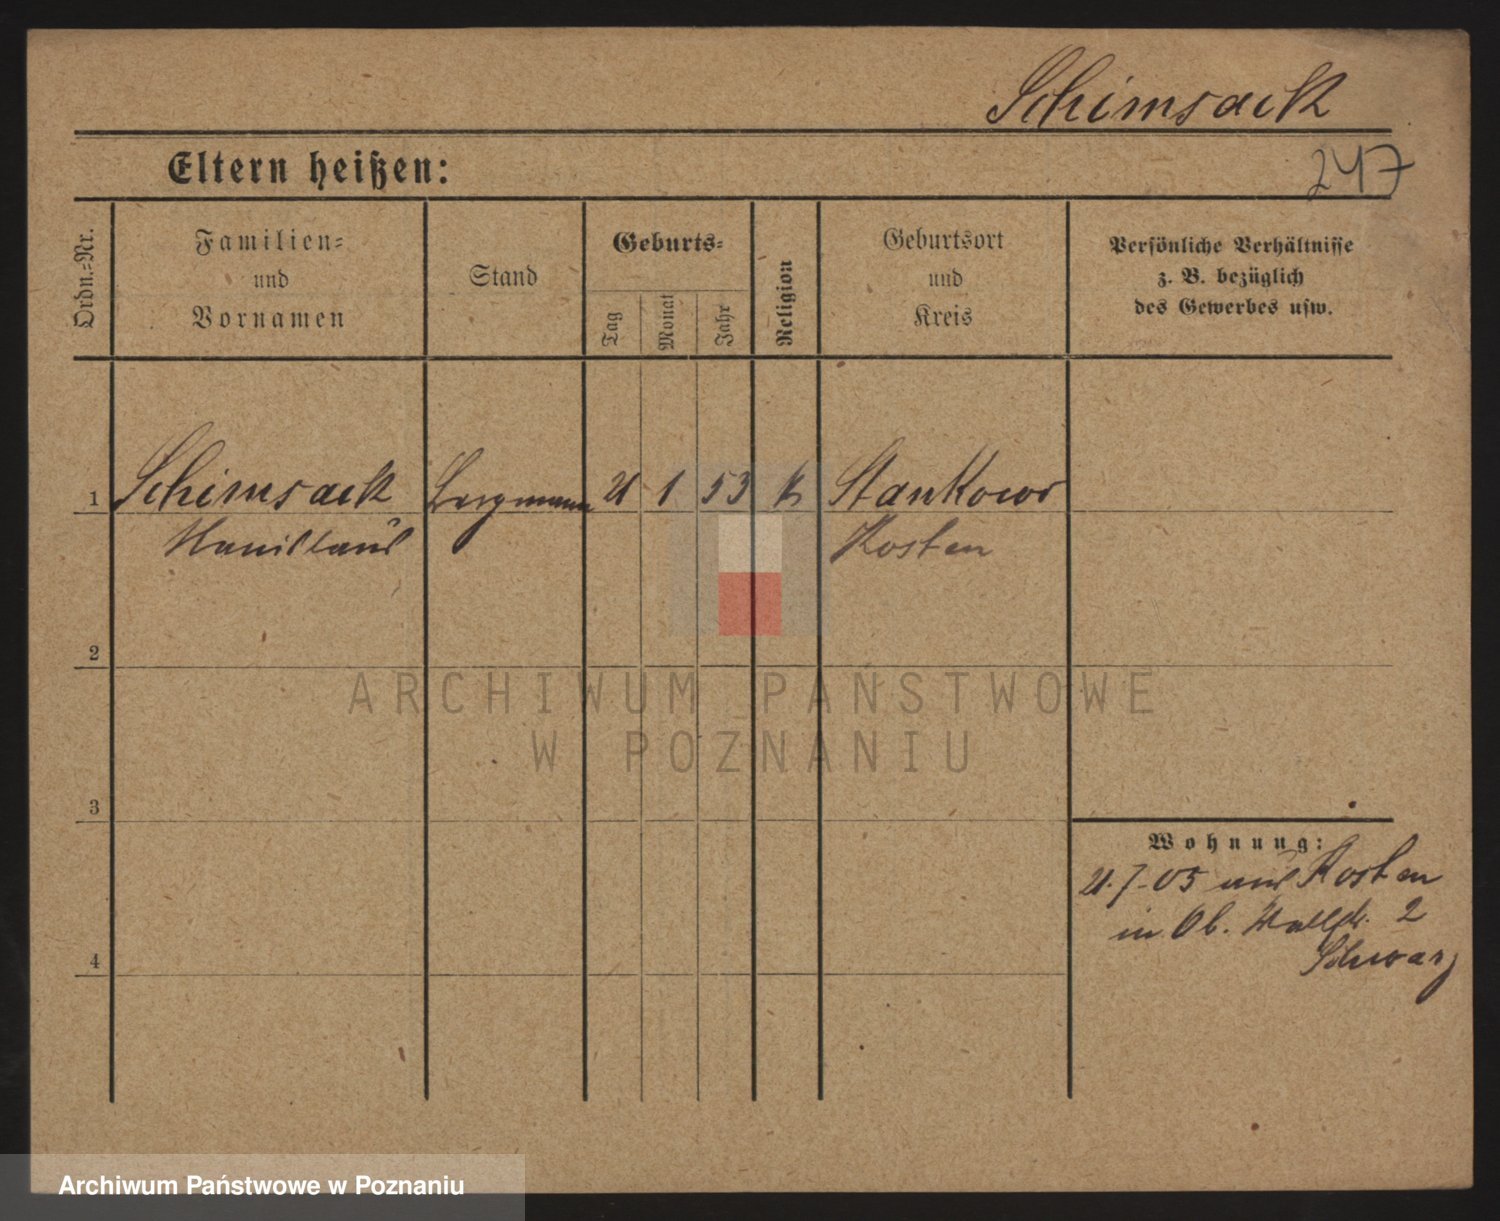 Schimsack
247
Eltern heißen:
Ordn.=Nr.
Familien=
und
Vornamen
Stand
Geburts=
Tag
Monat
Jahr
Religion
Geburtsort
und
Kreis
Persönliche Verhältnisse
z. B. bezüglich
des Gewerbes usw.
1 Schimsack Bergmann 21 1 53 k Stankowo
Kosten
2
ARCHIWUM PAŃSTWOWE
W POZNANIU
3
Wohnung:
21.7.05 aus Kosten
in Ob. Wallstr. 2
Schwarz
4
Archiwum Państwowe w Poznaniu